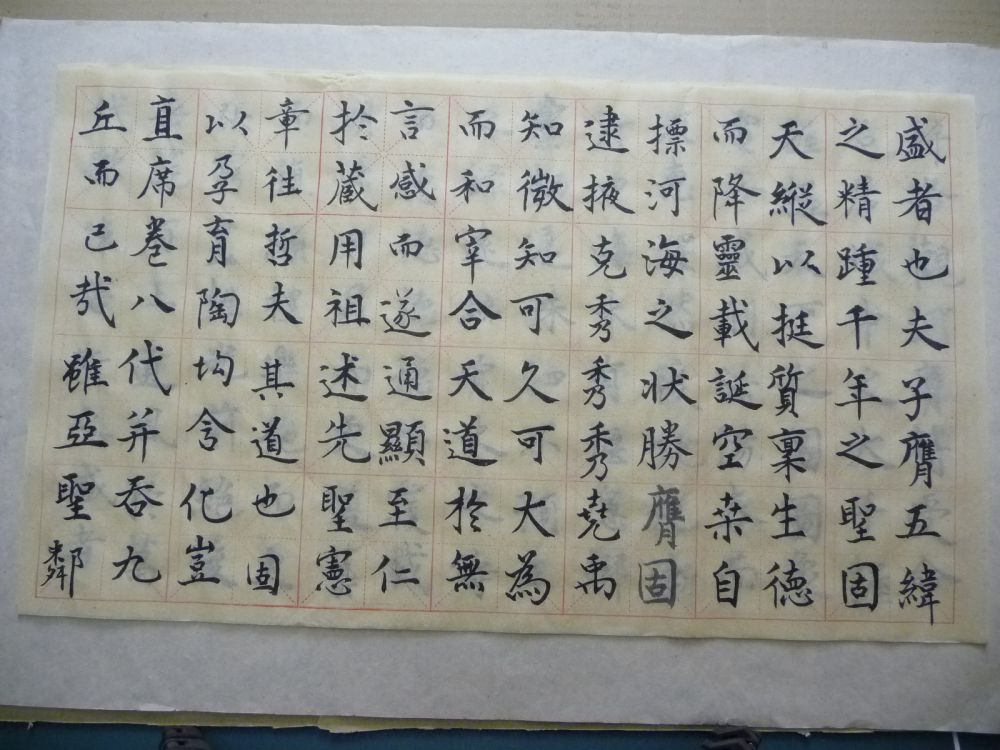 盛者也夫子膺五緯
之精踵千年之聖固
天縱以挺質稟生德
而降靈載誕空桒自
摽河海之狀勝膺固
逮掖克秀秀秀堯禹
知微知可久可大為
而和宰合天道於無
言感而遂通顯至仁
於藏用祖述先聖憲
章往哲夫其道也固
以孕育陶均含化豈
直席卷八代并吞九
丘而已哉雖亞聖鄰